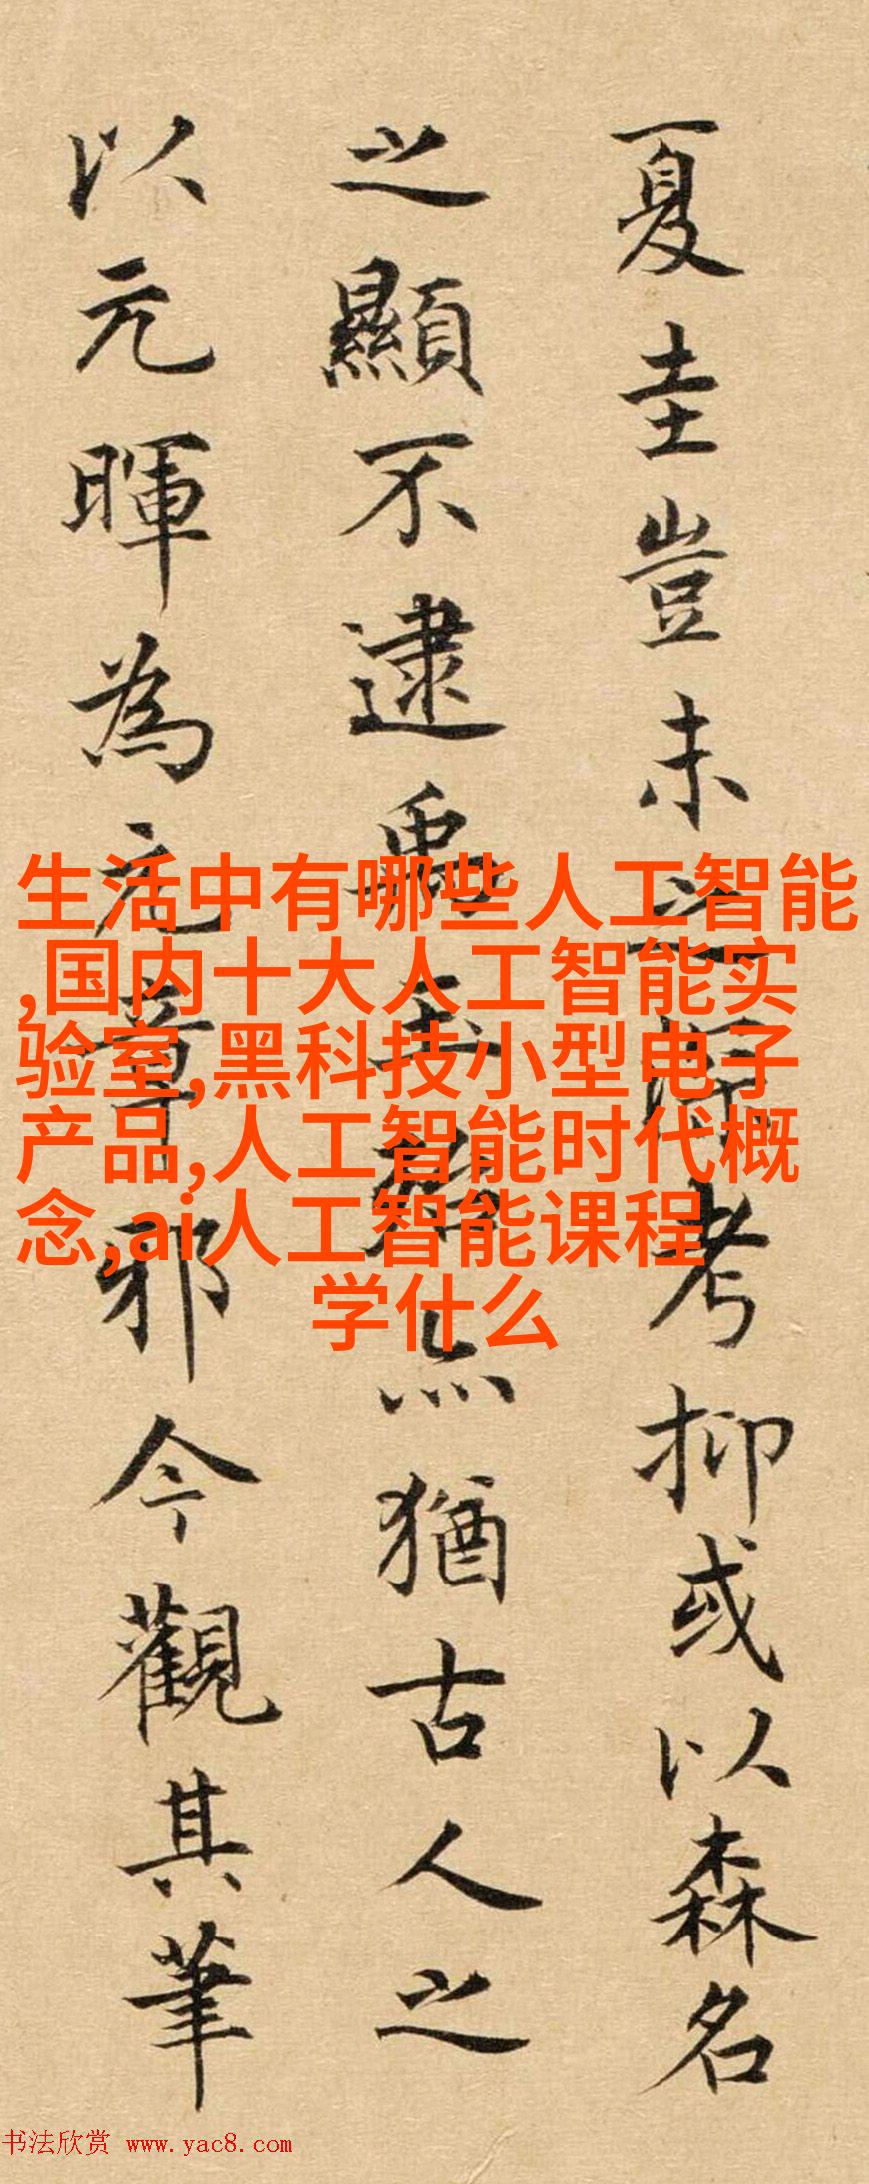 夏圭豈未之深考抑或以森名
之顯不逮禹玉亦猶古人之
以元暉為元章邪今觀其筆
生活中有哪些人工智能
,国内十大人工智能实
验室,黑科技小型电子
产品,人工智能时代概
念,ai人工智能课程
学什么
书法欣赏 www.yac8.com